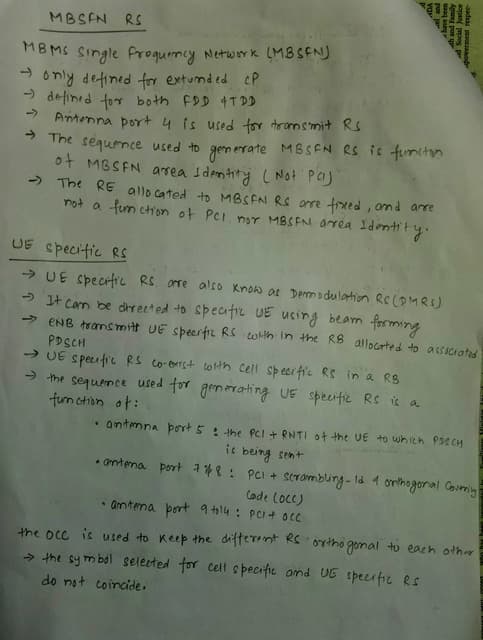 MBSFN RS
MBMS Single Frequency Network (MBSFN)
→ only defined for extended CP
→ defined for both FDD & TDD
→ Antenna port 4 is used for transmit RS
→ The sequence used to generate MBSFN RS is function
of MBSFN area Identity (Not PCI)
→ The RE allocated to MBSFN RS are fixed, and are
not a function of PCI nor MBSFN area Identity.
UE specific RS
→ UE specific RS are also know as Demodulation RS (DMRS)
→ It can be directed to specific UE using beam forming
→ eNB transmitt UE specific RS with in the RB allocated to associated
PDSCH
→ UE specific RS co-exist with cell specific RS in a RB
→ the sequence used for generating UE specific RS is a
function of:
• antenna port 5 : the PCI + RNTI of the UE to which PDSCH
is being sent
• antenna port 7 & 8 : PCI + scrambling-Id & orthogonal Covering
Code (OCC)
• antenna port 9 to 14 : PCI + OCC
the OCC is used to keep the different RS orthogonal to each other
→ the symbol selected for cell specific and UE specific RS
do not coincide.
have been
th and Family
d Social Justice